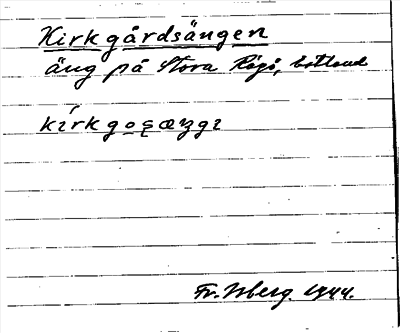 Kirkgårdsängen
äng på Stora Rågö, Estland
kirkgosæŋgı
Fr. Isberg. 1944.